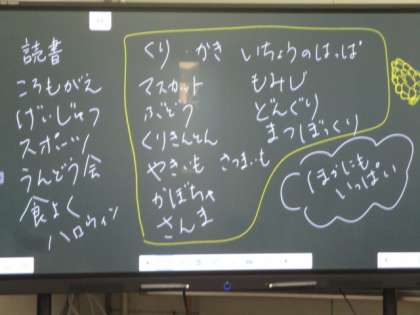 読書
ころもがえ
げいじゅつ
スポーツ
うんどう会
食よく
ハロウィン
くり かき いちょうのはっぱ
マスカット もみじ
ぶどう どんぐり
くりきんとん まつぼっくり
やきいも さつまいも
かぼちゃ
さんま
ほかにも
いっぱい